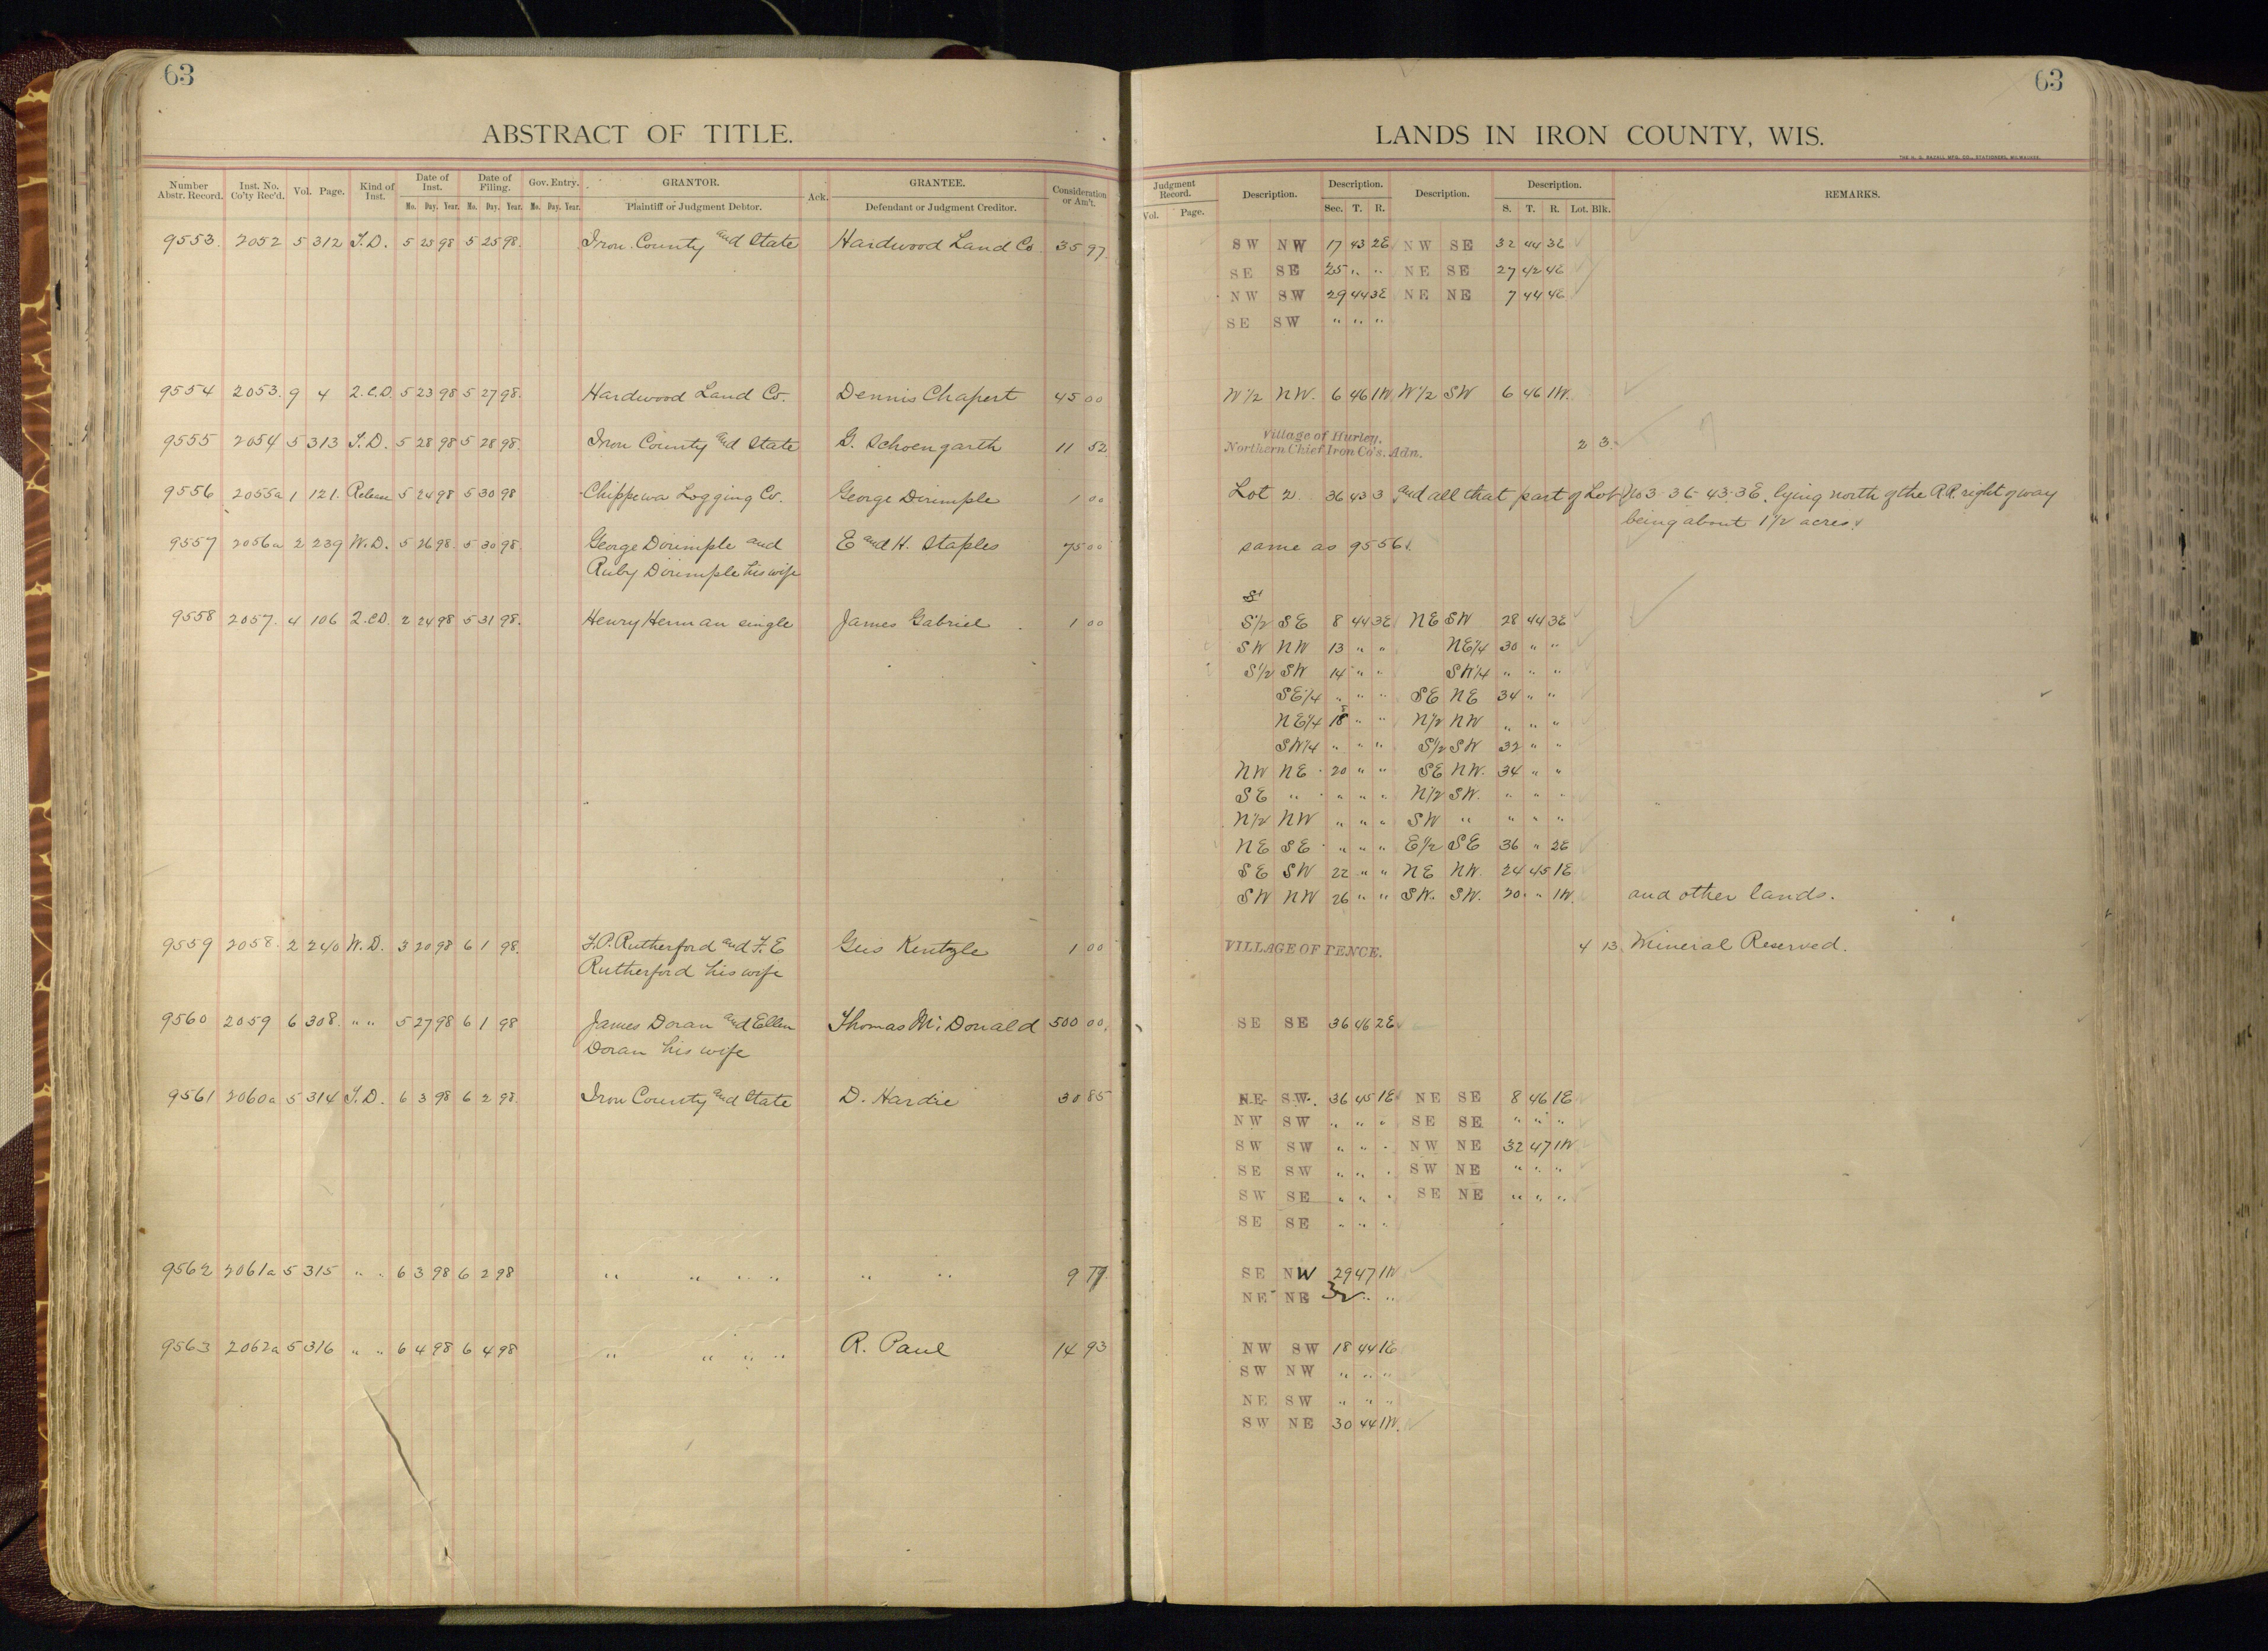 63
ABSTRACT OF TITLE.
Number Abstr. Record. Inst. No. Co'ty Rec'd. Vol. Page. Kind of Inst. Date of Inst. Mo. Day. Year. Date of Filing. Mo. Day. Year. Gov. Entry. Mo. Day. Year. GRANTOR. Plaintiff or Judgment Debtor. Ack. GRANTEE. Defendant or Judgment Creditor. Consideration or Am't.
9553 2052 5 312 T.D. 5 25 98 5 25 98. Iron County and State Hardwood Land Co. 35 97
9554 2053. 9 4 2.C.D. 5 23 98 5 27 98. Hardwood Land Co. Dennis Chapert 45 00
9555 2054 5 313 T.D. 5 28 98 5 28 98. Iron County and State G. Schoengarth 11 52
9556 2055a 1 121. Release 5 24 98 5 30 98 Chippewa Logging Co. George Dirimple 1 00
9557 2056a 2 239 W.D. 5 26 98. 5 30 98. George Dirimple and E and H. Staples 75 00
Ruby Dirimple his wife
9558 2057. 4 106 2.C.D. 2 24 98 5 31 98. Henry Herman single James Gabriel 1 00
9559 2058. 2 240 W.D. 3 20 98 6 1 98. F.P. Rutherford and F.E Gus Kentzle 1 00
Rutherford his wife
9560 2059 6 308. " " 5 27 98 6 1 98 James Doran and Ellen Thomas McDonald 500 00
Doran his wife
9561 2060a 5 314 T.D. 6 3 98 6 2 98. Iron County and State D. Hardie 30 85
9562 2061a 5 315 " " 6 3 98 6 2 98 " " " " " " 9
9563 2062a 5 316 " " 6 4 98 6 4 98 " " " " R. Paul 14 93
63
LANDS IN IRON COUNTY, WIS.
THE H. G. RAZALL MFG. CO., STATIONERS, MILWAUKEE.
Judgment Record. Vol. Page. Description. Description. Sec. T. R. Description. Description. S. T. R. Lot. Blk. REMARKS.
SW NW 17 43 2E NW SE 32 44 3E
SE SE 25 " " NE SE 27 42 4E
NW SW 29 44 3E NE NE 7 44 4E
SE SW " " "
W1/2 NW. 6 46 1W W1/2 SW 6 46 1W.
Village of Hurley.
Northern Chief Iron Co's. Adn. 2 3.
Lot 2 36 43 3 and all that part of Lot No 3 36-43-3E. lying north of the R.R. right of way
being about 1 1/2 acres
same as 9556.
S1
S1/2 SE 8 44 3E NE SW 28 44 3E
SW NW 13 " " NE1/4 30 " "
S1/2 SW 14 " " SW1/4 " " "
SE1/4 " " " SE NE 34 " "
NE1/4 18 " " N1/2 NW " " "
SW1/4 " " " S1/2 SW 32 " "
NW NE 20 " " SE NW. 34 " "
SE " " " " N1/2 SW. " " "
N1/2 NW " " " SW " " " "
NE SE " " " E1/2 SE 36 " 2E
SE SW 22 " " NE NW. 24 45 1E
SW NW 26 " " SW. SW. 20 " 1W. and other lands.
VILLAGE OF PENCE. 4 13 Mineral Reserved.
SE SE 36 46 2E
NE SW. 36 45 1E NE SE 8 46 1E
NW SW " " " SE SE " " "
SW SW " " " NW NE 32 47 1W
SE SW " " " SW NE " " "
SW SE " " " SE NE " " "
SE SE " " "
SE NW 29 47 1W
NE NE 32 " "
NW SW 18 44 1E
SW NW " " "
NE SW " " "
SW NE 30 44 1W.